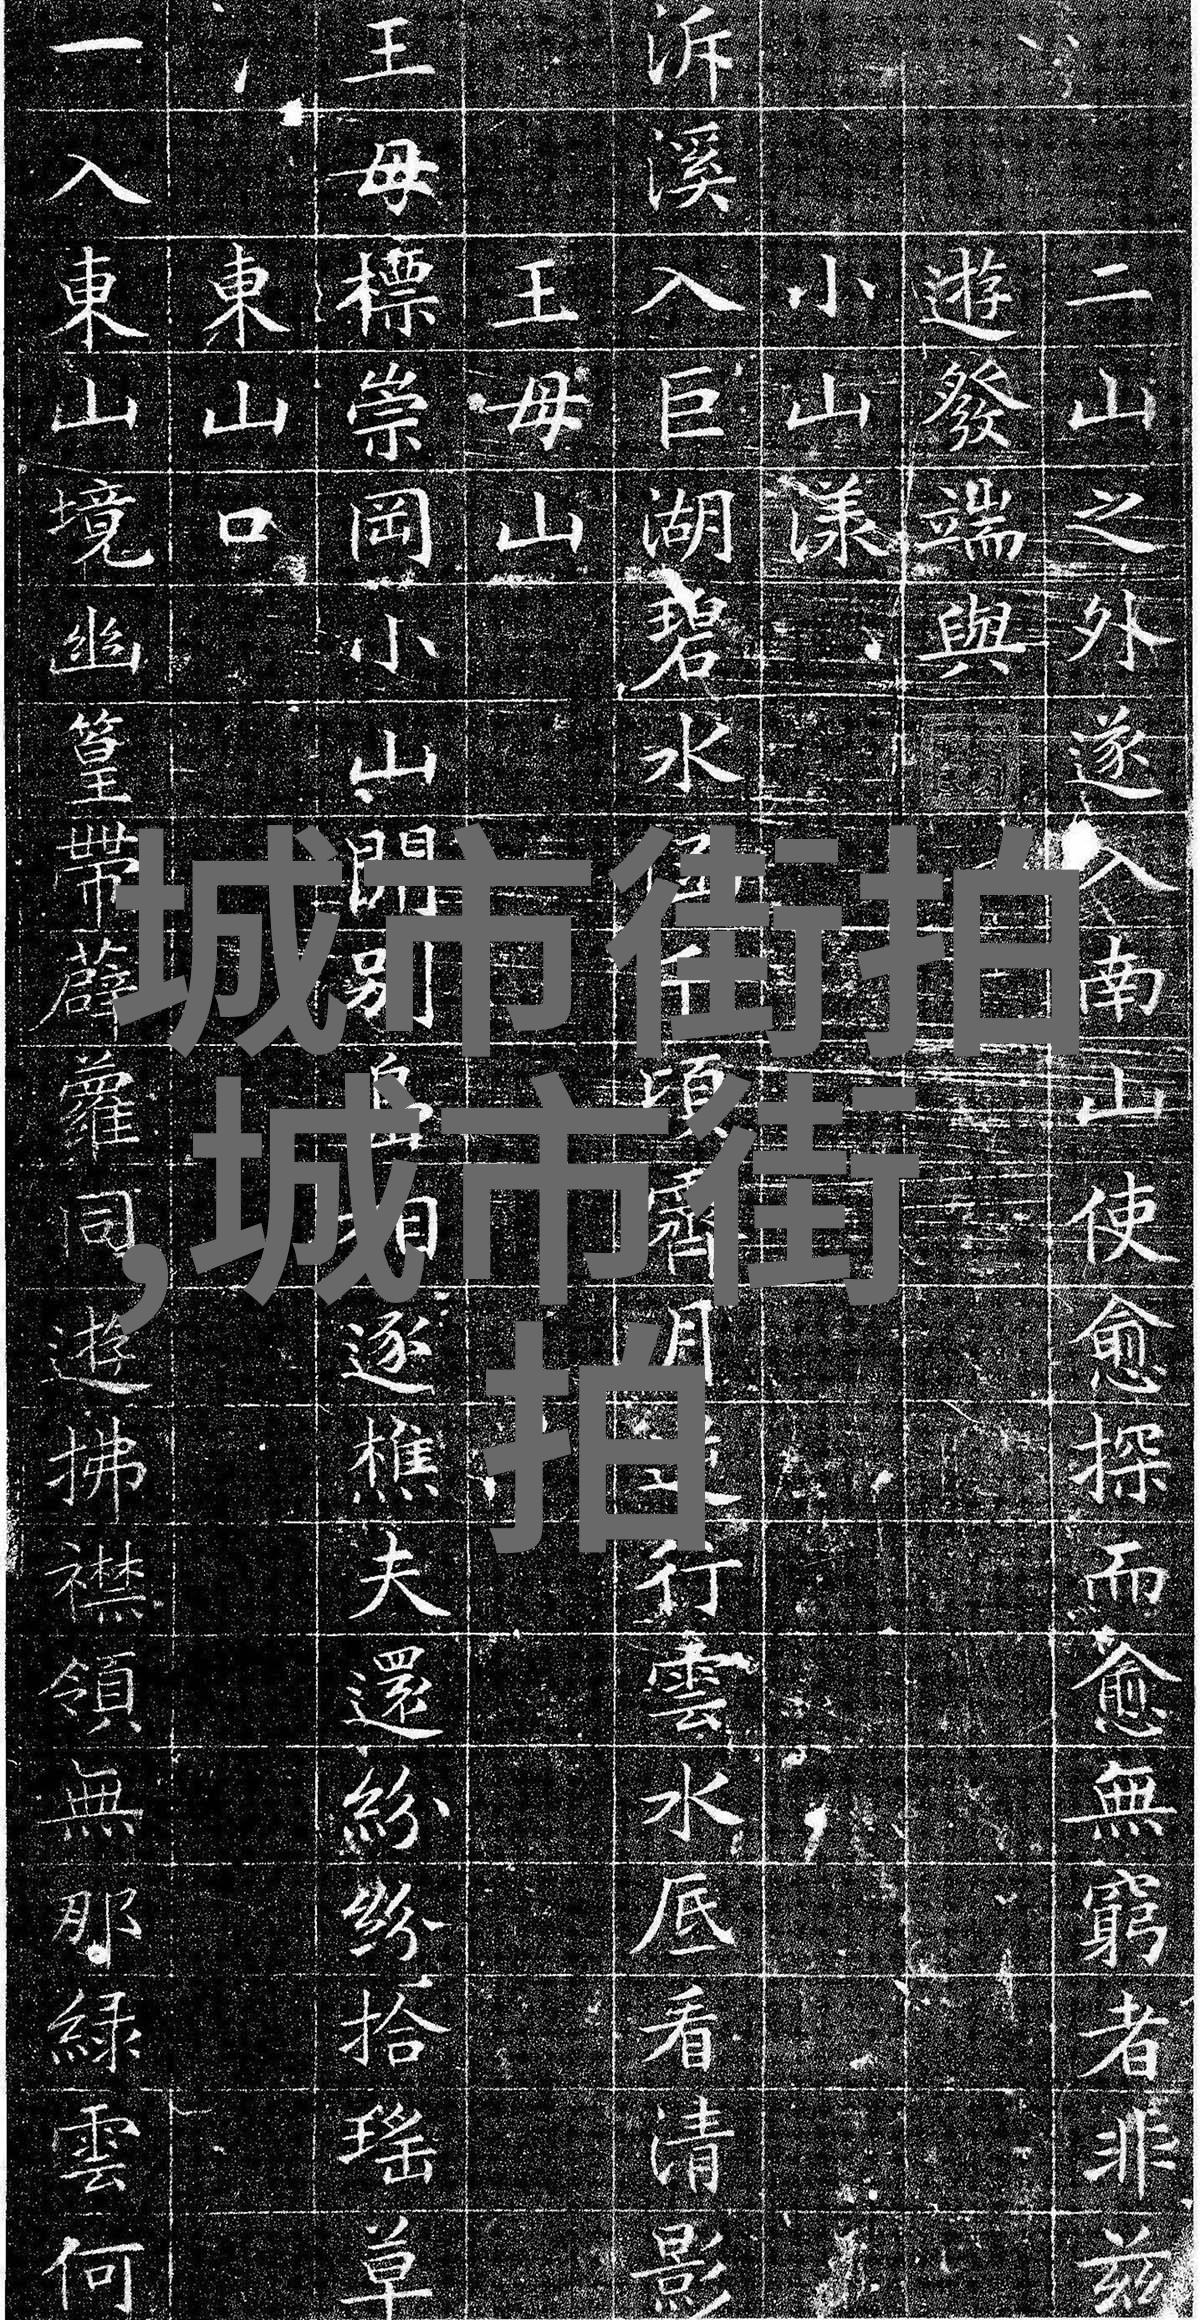 二山之外遂入南山使愈探而愈無窮者非茲
遊發端與
小山漾
泝溪入巨湖碧水頃月行雲水底看清影
王母山
王母標崇岡小山開別相逐樵夫還紛紛拾瑤草
東山口
一入東山境幽篁帶薜蘿同遊拂襟領無那緑雲何
城市街拍
,城市街
拍